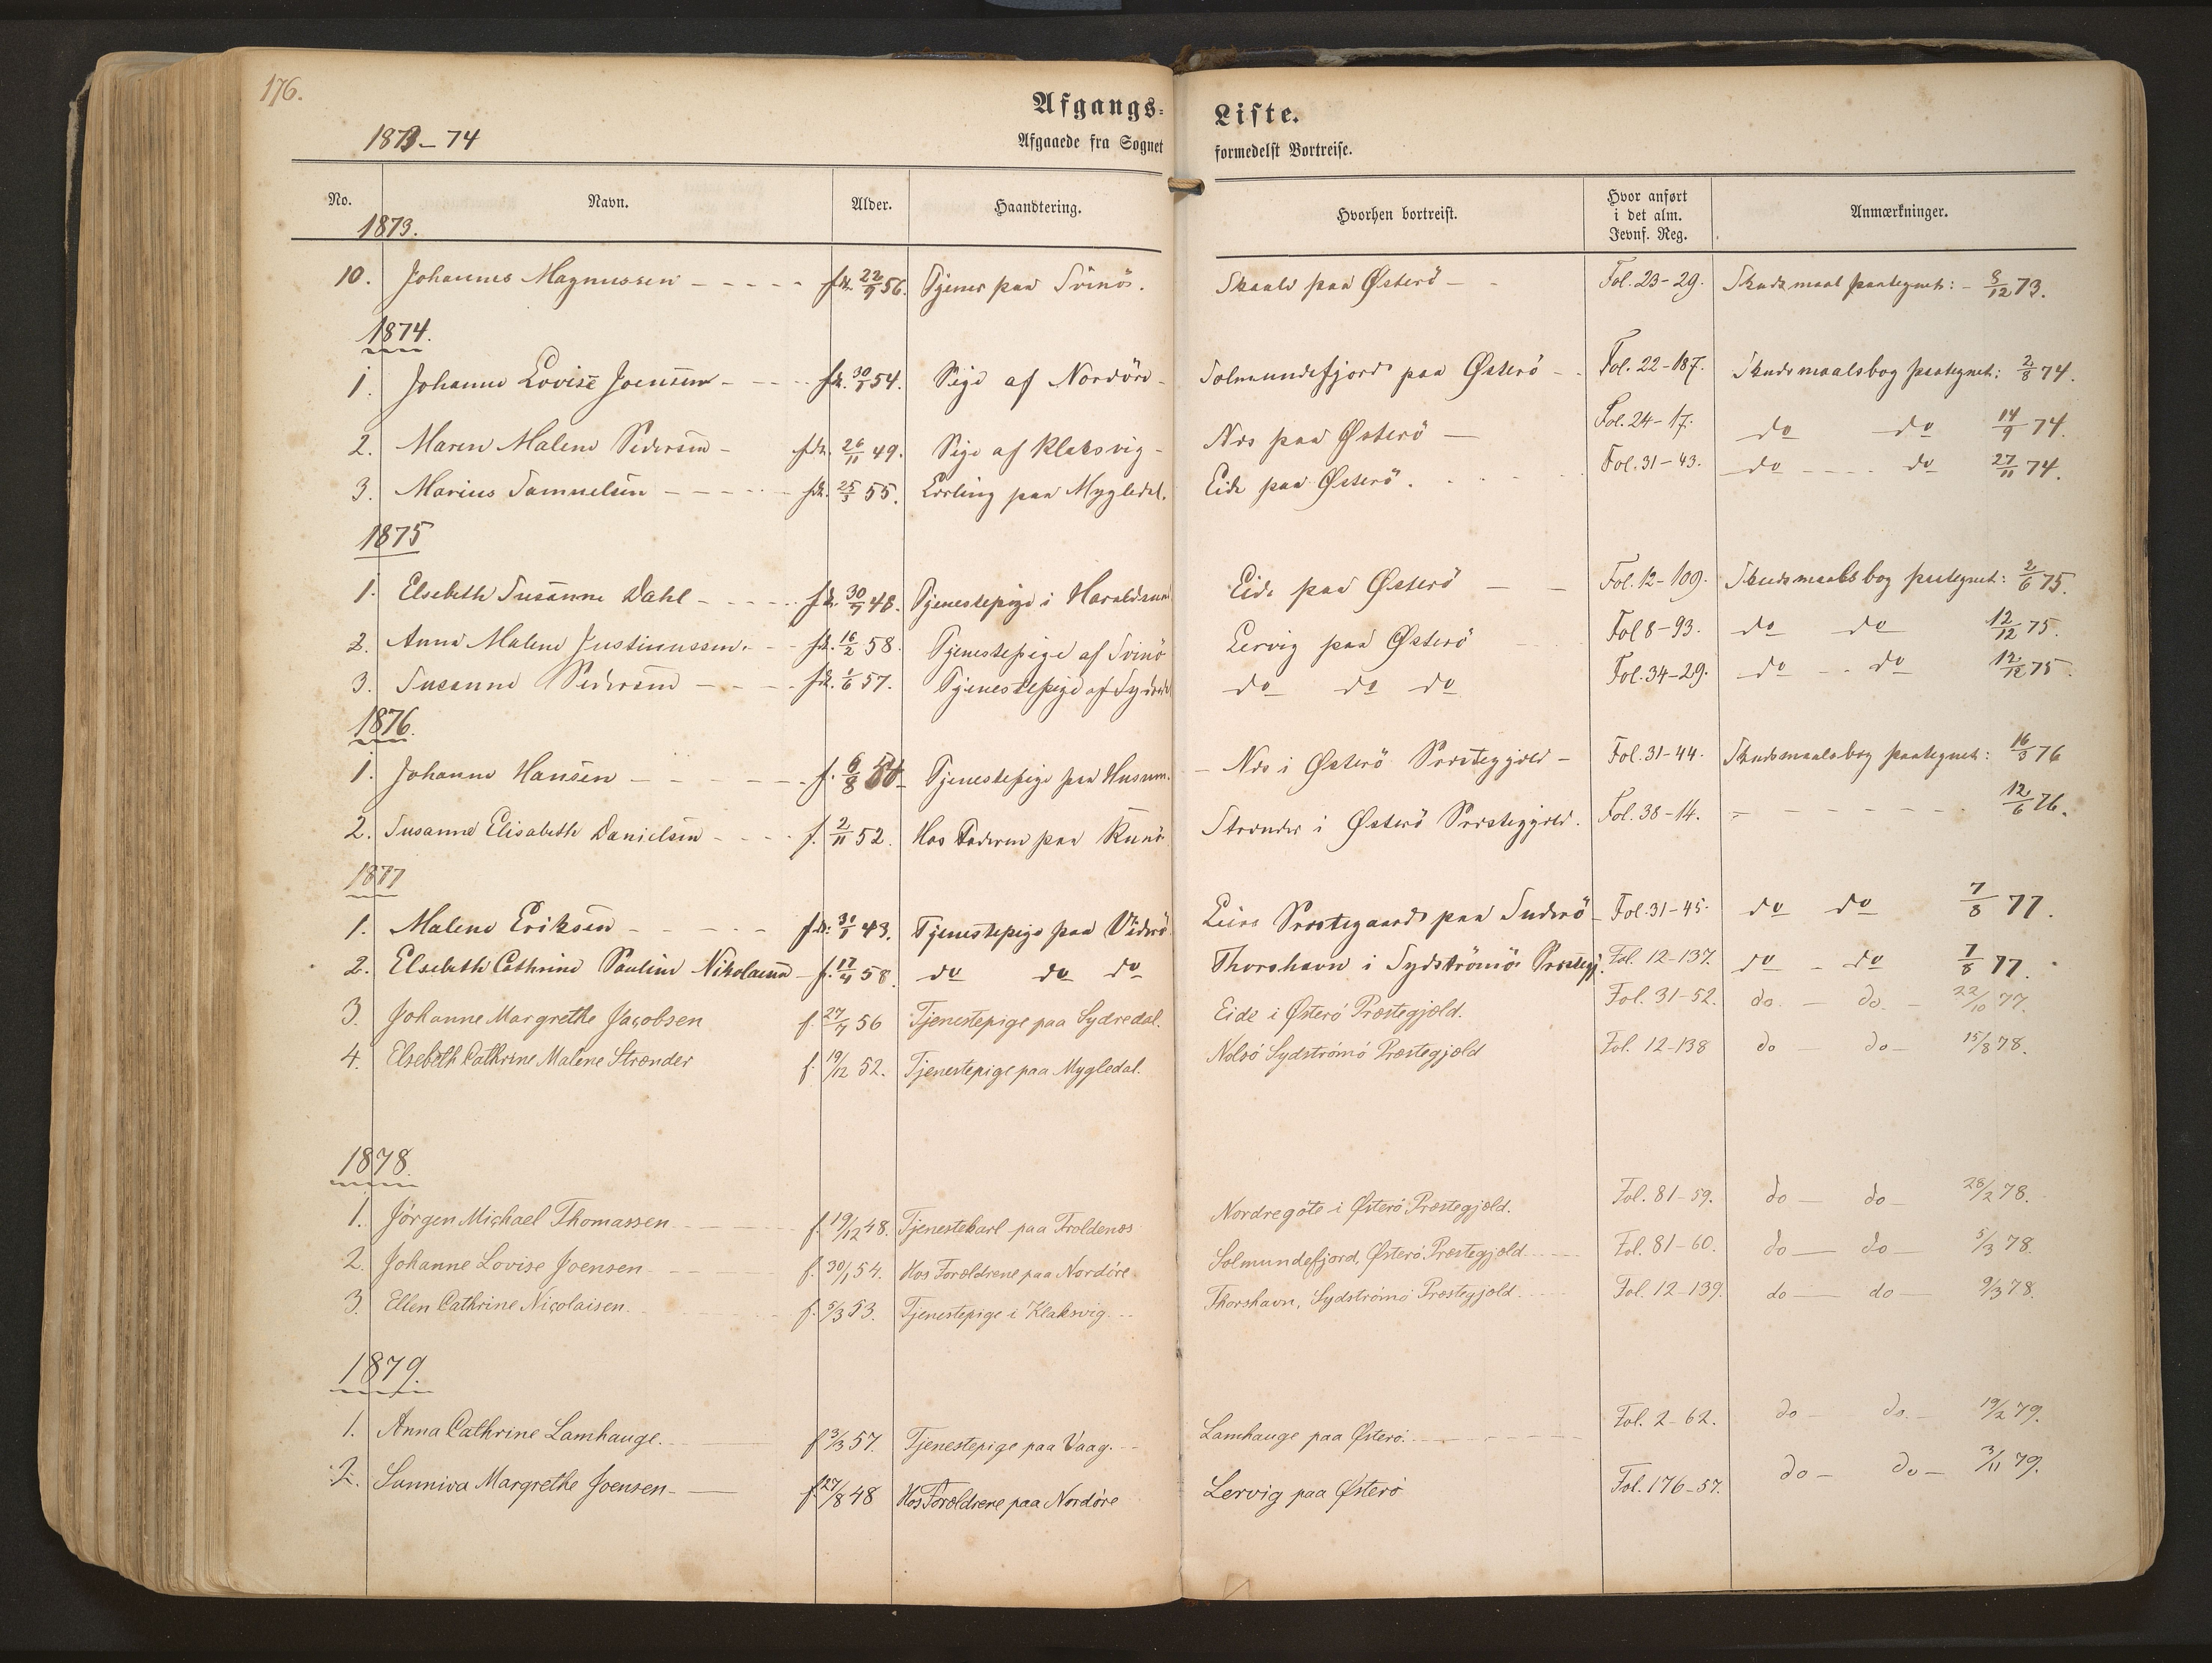 176.
Afgangs- Liste.
1873-74 Afgaaede fra Sognet formedelst Bortreise.
No. Navn. Alder. Haandtering. Hvorhen bortreist. Hvor anført i det alm. Jevnf. Reg. Anmærkninger.
1873.
10. Johannes Magnussen - - - - - fdt. 22/9 56. Tjener paa Svinö. Skaale paa Østerö - - Fol. 23-29. Skudsmaal paategnet: - 8/12 73.
1874.
1. Johanne Lovise Joensen - - - - fdt. 30/1 54. Pige af Nordöre - Solmundefjord paa Østerö - - Fol. 22-187. Skudsmaalsbog paategnet: 2/8 74.
2. Maren Malene Pedersen - fdt. 26/11 49. Pige af Klaksvig - Nes paa Østerö - Fol. 24-17. do do 14/9 74.
3. Marius Samuelsen - - - - - fdt. 25/3 55. Lærling paa Mygledal. Eide paa Østerö. Fol. 31-43. do - - - - do 27/11 74.
1875
1. Elsebeth Susanne Dahl - - - - fdt. 30/7 48. Tjenestepige i Haraldsund Eide paa Østerö - - Fol. 12-109. Skudsmaalsbog paategnet: 2/6 75.
2. Anna Malene Justinussen. - - fdt. 16/2 58. Tjenestepige af Svinö Lervig paa Østerö Fol 8-93. do do 12/12 75.
3. Susanne Pedersen - - - fdt. 1/6 57. Tjenestepige af do do do Fol. 34-29. do - - do 12/12 75.
1876.
1. Johanne Hansen - - - - - f. 6/8 Tjenestepige paa Husum. - Nes i Østerö Præstegjeld - Fol. 31-44. Skudsmaalsbog paategnet: 16/3 76
2. Susanne Elisabeth Danielsen - - - - f. 2/11 52. Hos Faderen paa Kunö Strender i Østerö Præstegjeld. Fol. 38-14. - - - - - - - 12/6 76.
1877
1. Malene Eriksen - - - - - fdt. 43. Tjenestepige paa Viderö Præstegaard paa Suderö - Fol. 31-45. do do 7/8 77.
2. Elsebeth Cathrine Pauline Nikolaisen - f. 17/4 58. do do do Thorshavn i Sydströmö Præstegj. Fol. 12-137. do - do 7/8 77.
3. Johanne Margrethe Jacobsen f. 27/7 56 Tjenestepige paa Sydredal. Eide i Østerö Præstegjeld. Fol. 31-52. do. - do. - 22/10 77.
4. Elsebeth Cathrine Malene Strender f. 19/12 52. Tjenestepige paa Mygledal. Nolsö Sydströmö Præstegjeld Fol. 12-138 do - do - 15/8 78.
1878.
1. Jörgen Michael Thomassen - - - - f. 19/12 48. Tjenestekarl paa Troldenæs Nordregöte i Østerö Præstegjeld. Fol. 81-59. do - do - 28/2 78.
2. Johanne Lovise Joensen - - - - f. 30/1 54. Hos Forældrene paa Nordöre. Solmundefjord, Østerö Præstegjeld - - - Fol. 81-60. do - do - 5/3 78.
3. Ellen Cathrine Nicolaisen. - - - f. 5/3 53. Tjenestepige i Klaksvig. - - Thorshavn, Sydströmö Præstegjeld. - - - Fol. 12-139. do - do - 9/3 78.
1879.
1. Anna Cathrine Lamhauge. - - f 3/3 57. Tjenestepige paa Vaag. - - Lamhauge paa Østerö. - - - - - - Fol. 2-62. do - do. - 19/2 79.
2. Sunniva Margrethe Joensen - - f. 27/8 48 Hos Forældrene paa Nordöre Lervig paa Østerö Fol. 176-57. do - do - 3/11 79.